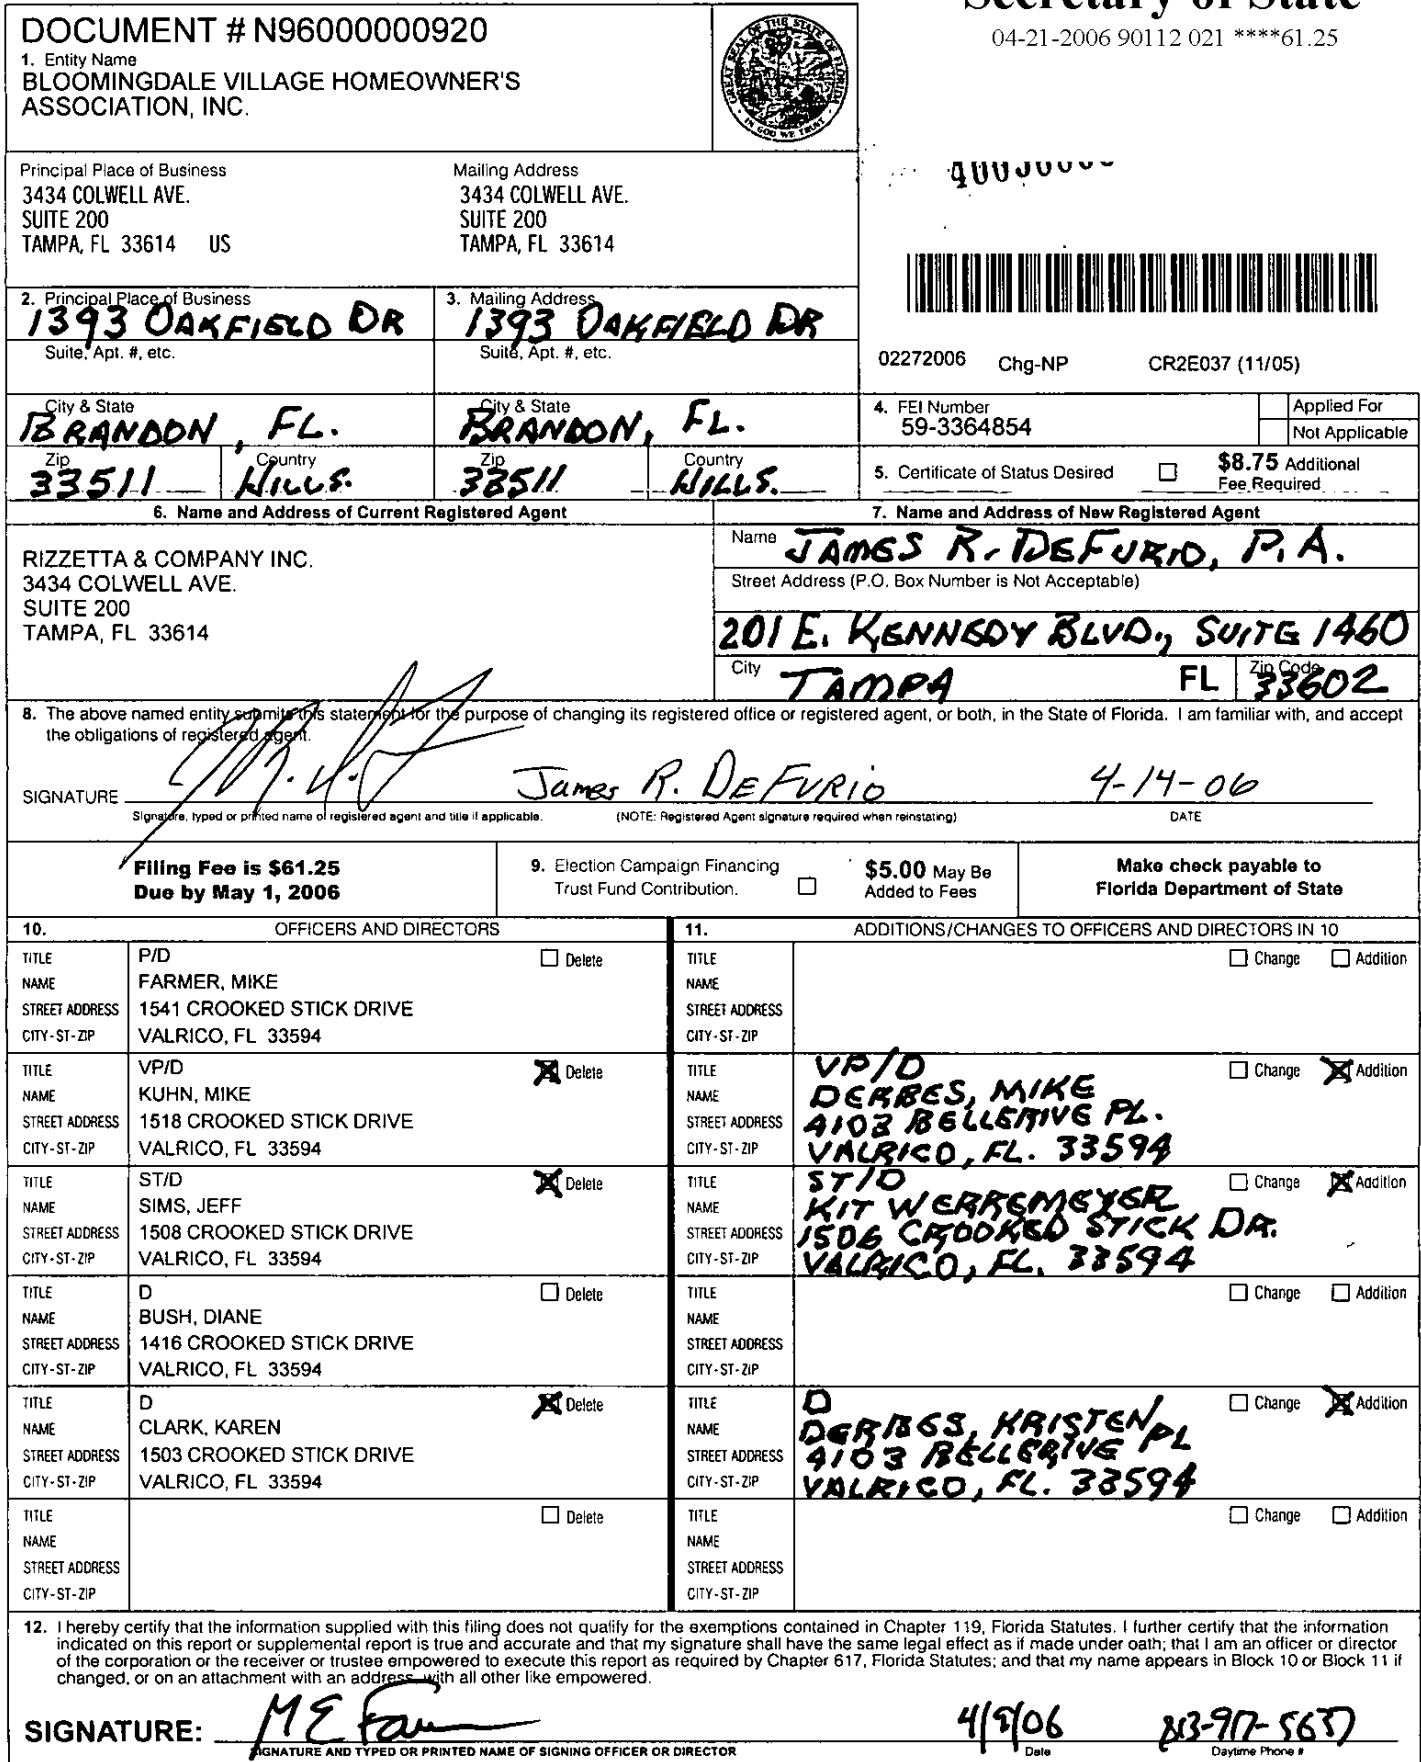 Secretary of State
04-21-2006 90112 021 ****61.25
DOCUMENT # N96000000920
1. Entity Name
BLOOMINGDALE VILLAGE HOMEOWNER'S
ASSOCIATION, INC.
GREAT SEAL OF THE STATE OF FLORIDA
IN GOD WE TRUST
Principal Place of Business
3434 COLWELL AVE.
SUITE 200
TAMPA, FL 33614 US
Mailing Address
3434 COLWELL AVE.
SUITE 200
TAMPA, FL 33614
2. Principal Place of Business
1393 OAKFIELD DR
Suite, Apt. #, etc.
City & State
BRANDON, FL.
Zip
33511
Country
HILLS.
3. Mailing Address
1393 OAKFIELD DR
Suite, Apt. #, etc.
City & State
BRANDON, FL.
Zip
33511
Country
HILLS.
02272006 Chg-NP CR2E037 (11/05)
4. FEI Number
59-3364854
Applied For
Not Applicable
5. Certificate of Status Desired
$8.75 Additional
Fee Required
6. Name and Address of Current Registered Agent
RIZZETTA & COMPANY INC.
3434 COLWELL AVE.
SUITE 200
TAMPA, FL 33614
7. Name and Address of New Registered Agent
Name JAMES R. DEFURIO, P.A.
Street Address (P.O. Box Number is Not Acceptable)
201 E. KENNEDY BLVD., SUITE 1460
City TAMPA FL Zip Code 33602
8. The above named entity submits this statement for the purpose of changing its registered office or registered agent, or both, in the State of Florida. I am familiar with, and accept
the obligations of registered agent.
SIGNATURE James R. DEFURIO 4-14-06
Signature, typed or printed name of registered agent and title if applicable. (NOTE: Registered Agent signature required when reinstating) DATE
Filing Fee is $61.25
Due by May 1, 2006
9. Election Campaign Financing
Trust Fund Contribution.
$5.00 May Be
Added to Fees
Make check payable to
Florida Department of State
10. OFFICERS AND DIRECTORS
11. ADDITIONS/CHANGES TO OFFICERS AND DIRECTORS IN 10
TITLE P/D Delete
NAME FARMER, MIKE
STREET ADDRESS 1541 CROOKED STICK DRIVE
CITY-ST-ZIP VALRICO, FL 33594
TITLE Change Addition
NAME
STREET ADDRESS
CITY-ST-ZIP
TITLE VP/D Delete
NAME KUHN, MIKE
STREET ADDRESS 1518 CROOKED STICK DRIVE
CITY-ST-ZIP VALRICO, FL 33594
TITLE VP/D Change Addition
NAME DERBES, MIKE
STREET ADDRESS 4103 BELLERIVE PL.
CITY-ST-ZIP VALRICO, FL. 33594
TITLE ST/D Delete
NAME SIMS, JEFF
STREET ADDRESS 1508 CROOKED STICK DRIVE
CITY-ST-ZIP VALRICO, FL 33594
TITLE ST/D Change Addition
NAME KIT WERREMEYER
STREET ADDRESS 1506 CROOKED STICK DR.
CITY-ST-ZIP VALRICO, FL. 33594
TITLE D Delete
NAME BUSH, DIANE
STREET ADDRESS 1416 CROOKED STICK DRIVE
CITY-ST-ZIP VALRICO, FL 33594
TITLE Change Addition
NAME
STREET ADDRESS
CITY-ST-ZIP
TITLE D Delete
NAME CLARK, KAREN
STREET ADDRESS 1503 CROOKED STICK DRIVE
CITY-ST-ZIP VALRICO, FL 33594
TITLE D Change Addition
NAME DERBES, KRISTEN
STREET ADDRESS 4103 BELLERIVE PL
CITY-ST-ZIP VALRICO, FL. 33594
TITLE Delete
NAME
STREET ADDRESS
CITY-ST-ZIP
TITLE Change Addition
NAME
STREET ADDRESS
CITY-ST-ZIP
12. I hereby certify that the information supplied with this filing does not qualify for the exemptions contained in Chapter 119, Florida Statutes. I further certify that the information
indicated on this report or supplemental report is true and accurate and that my signature shall have the same legal effect as if made under oath; that I am an officer or director
of the corporation or the receiver or trustee empowered to execute this report as required by Chapter 617, Florida Statutes; and that my name appears in Block 10 or Block 11 if
changed, or on an attachment with an address, with all other like empowered.
SIGNATURE: 813-917-5637
SIGNATURE AND TYPED OR PRINTED NAME OF SIGNING OFFICER OR DIRECTOR Date Daytime Phone #